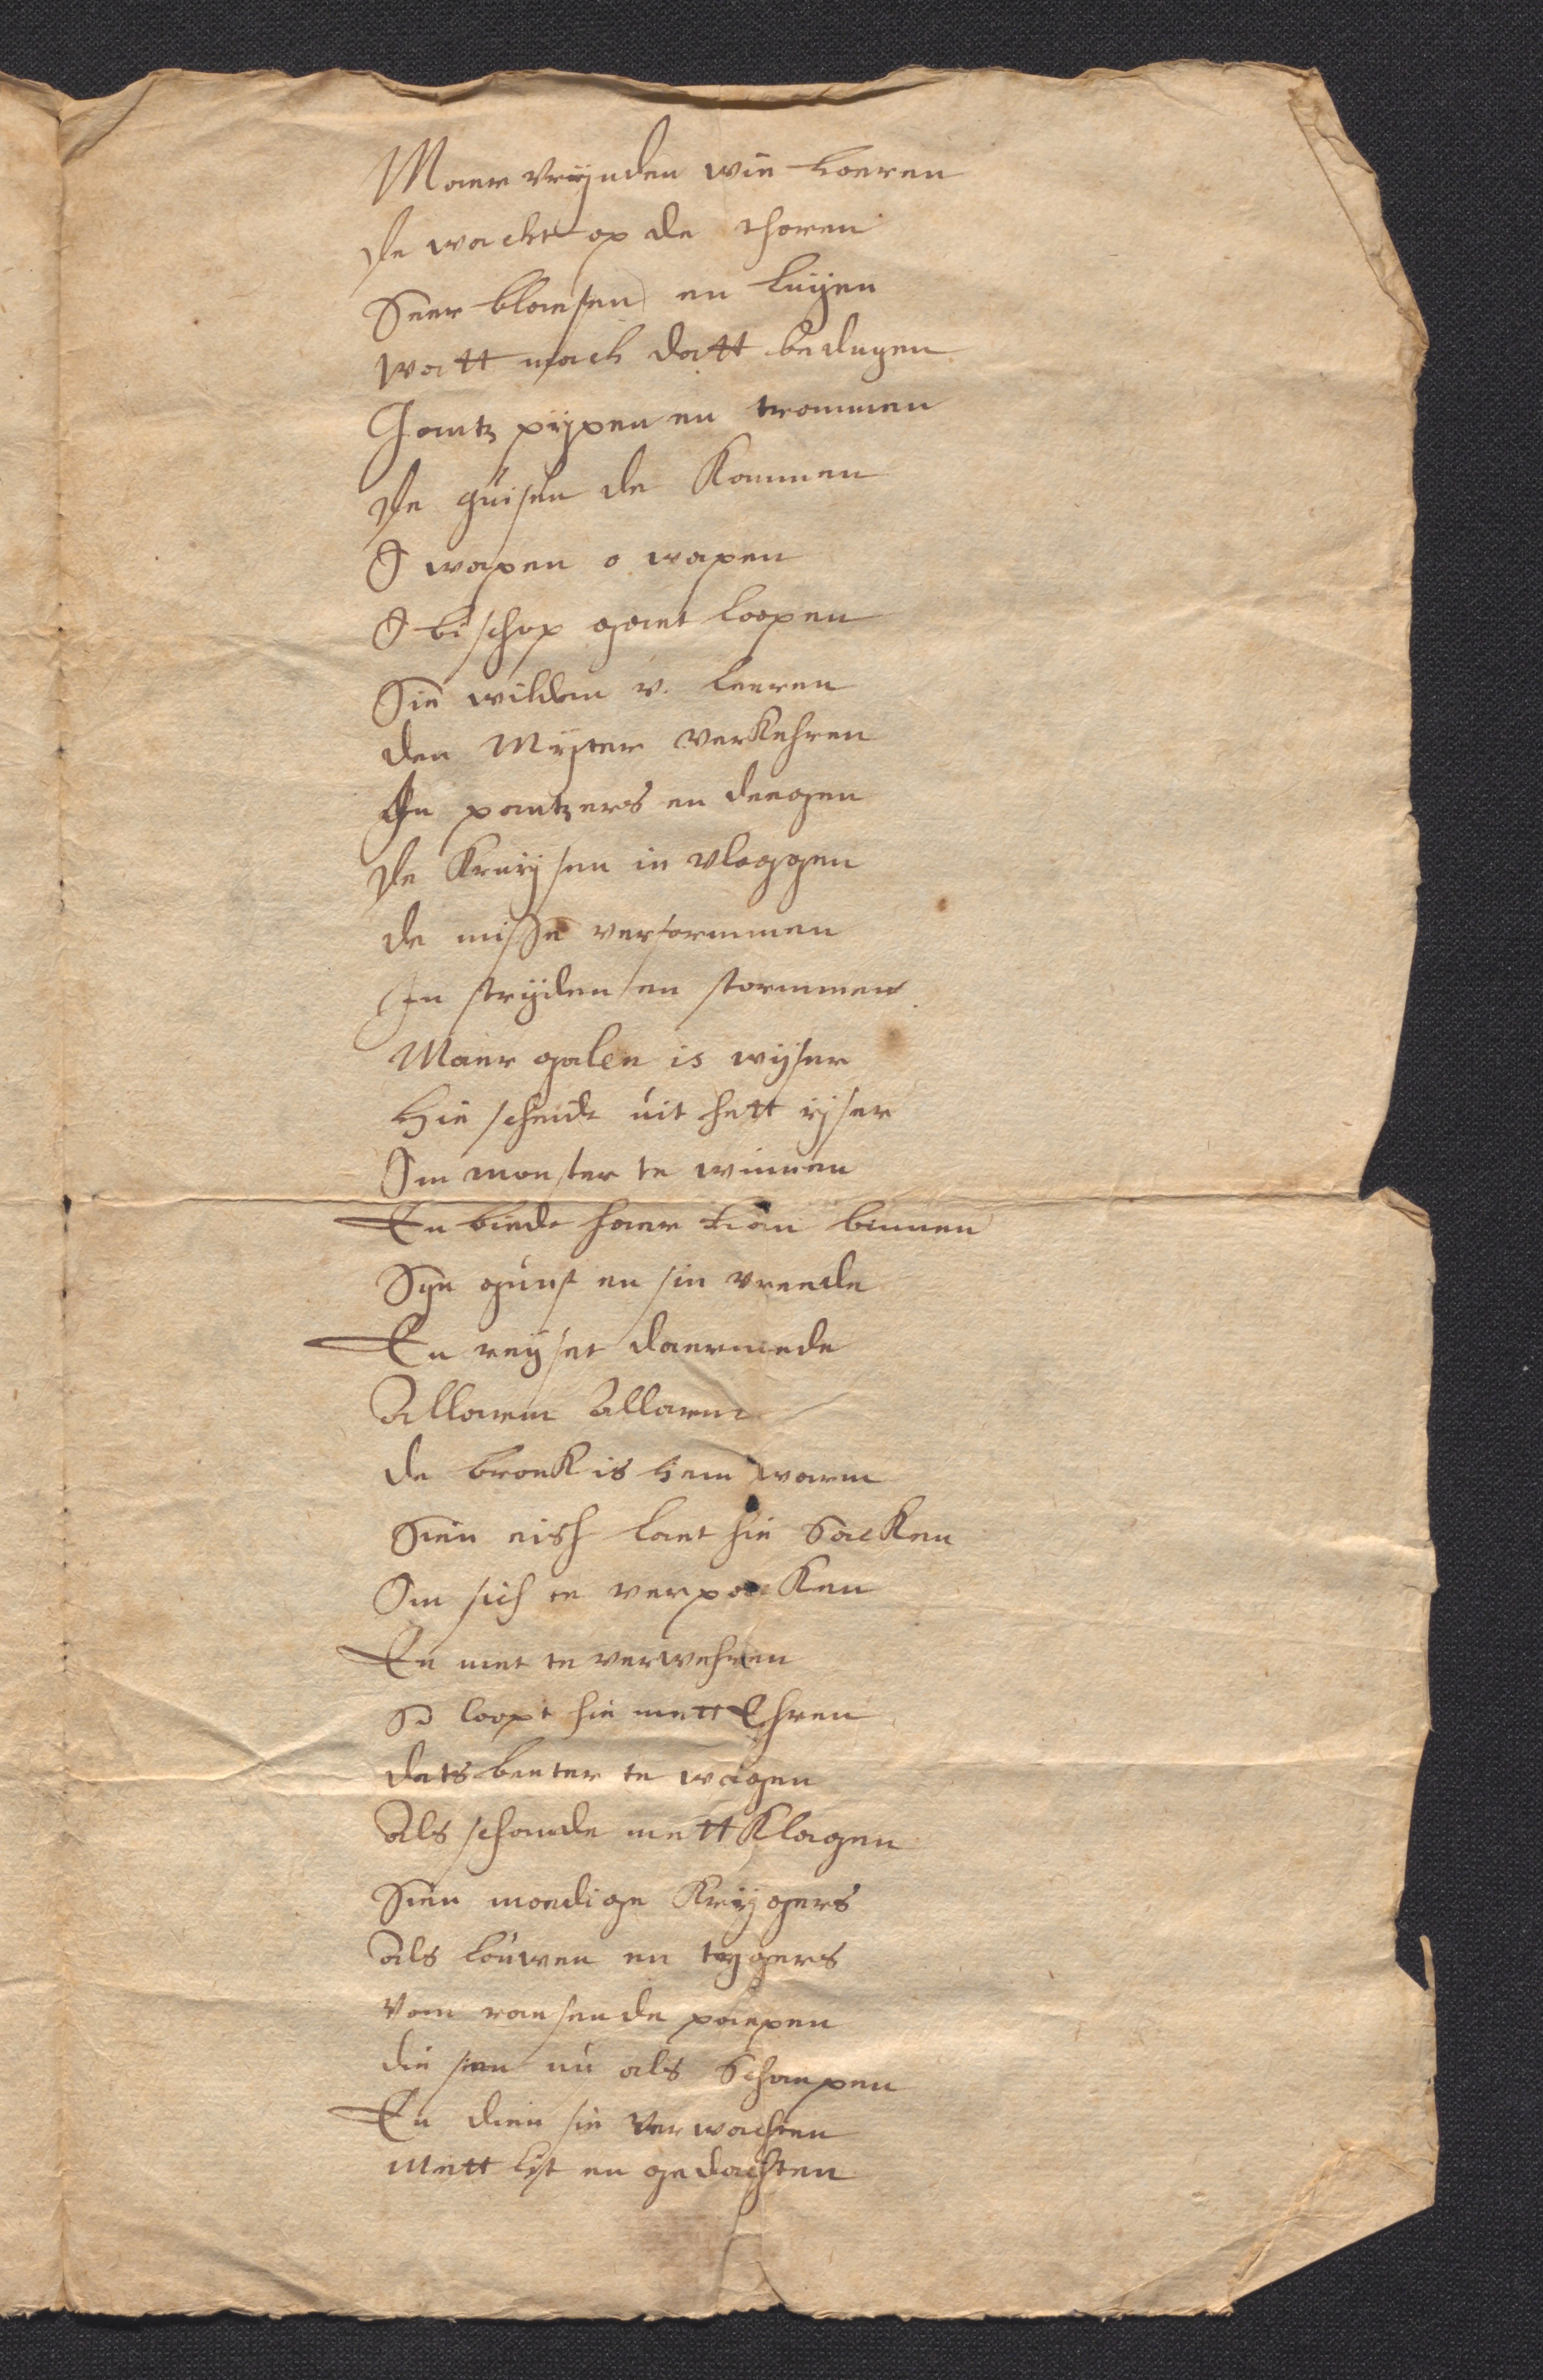 Maer vrijnden wie hoeren
De wacht op de thoren
Seer blaesen en luijen
Watt mach datt beduyen
Gantz pijpen en trommen
De guisen de kommen
O wapen o wapen
O bischop gaet loopen
Sie wilden v. leeren
den Mijter verkehren
In pantzers en deegen
De kruijsen in vlaggen
de misse versormmen
In strijden en stormmen
Maer galen is wijser
Hie scheidt uit hett ijser
Om monster te winnen
En biedt haer binnen
Syn gunst en sin vreede
En reijset daermede
Allarm Allarm
de broek is hem warm
Sien laet hie sacken
Om sich te verpacken
En niet te verwehren
So loopt hie mett Ehren
dats beeter te wagen
Als schande mett klagen
Sien moedige krijgers
Als louwen en teygers
Vam raesende paepen
die sien nu als schaepen
En dien sie verwachten
Mett list en gedachten